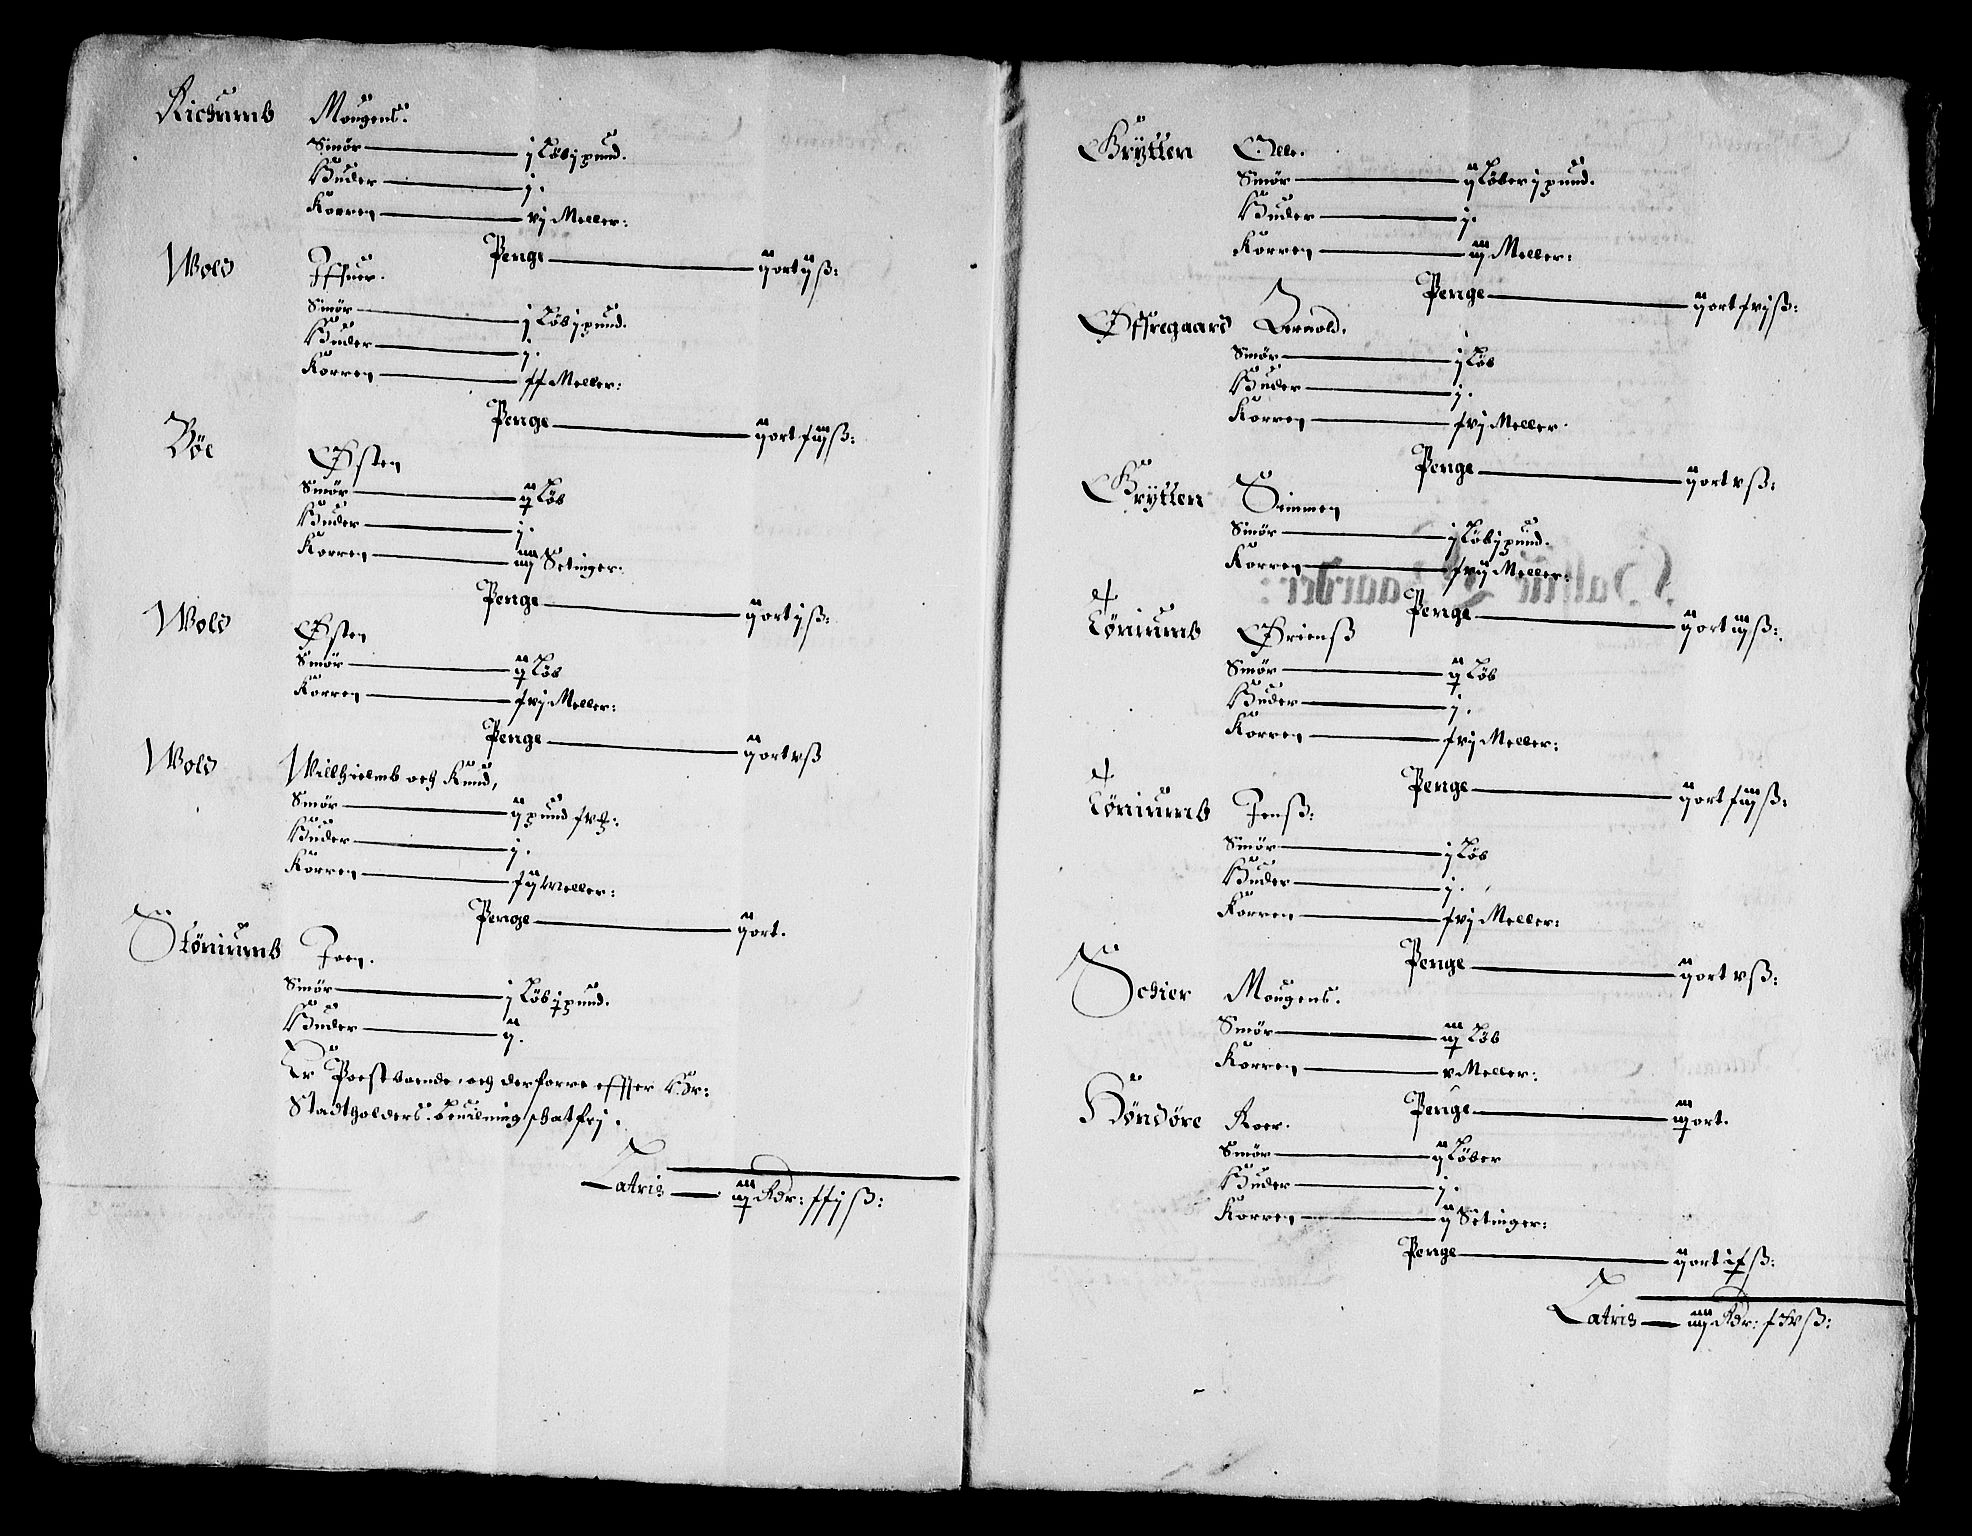 Kichumb Mougens.
Smør j Løb j pund.
Huder j.
Korren vj Meller:
Penge ij ort ij ß:
Wold Iffuer.
Smør j Løb j pund.
Huder j.
Korren xx Meller:
Penge ij ort xiij ß:
Böe Østen
Smør ij Løb
Huder j.
Korren iiij Setinger:
Penge ij ort ij ß:
Wold Østen
Smør ij Løb
Korren xvj Meller:
Penge ij ort v ß
Wold Willhielmb och Knud,
Smør ij pund
Huder j.
Korren xij Meller:
Penge ij ort.
Stöniumb Joen.
Smør j Løb j pund.
Huder ij.
Er Poest boende, och derforre effter Hr:
Stadtholders. Beuilning schatfrj.
Latris iij Rdr: xxj ß:
Grytten Olle.
Smør ij Løber j pund.
Huder j.
Korren iij Meller:
Penge ij ort xvj ß:
Øffregaard Bernold.
Smør j Løb
Huder j.
Korren xvj Meller.
Penge ij ort v ß:
Grytten Simmen
Smør j Løb j pund.
Korren xvij Meller:
Penge ij ort iij ß:
Töniumb Øriens
Smør ij Løb
Huder j.
Korren xvj Meller:
Penge ij ort xiij ß:
Töniumb Jenß:
Smør j Løb
Huder j.
Korren xvj Meller:
Penge ij ort v ß:
Schier Mougens.
Smør iij Løb
Korren v Meller:
Penge iij ort.
Höndöre Roer.
Smør ij Løber
Huder j.
Korren ij Setinger:
Penge ij ort ix ß:
Latris iiij Rdr: ß: